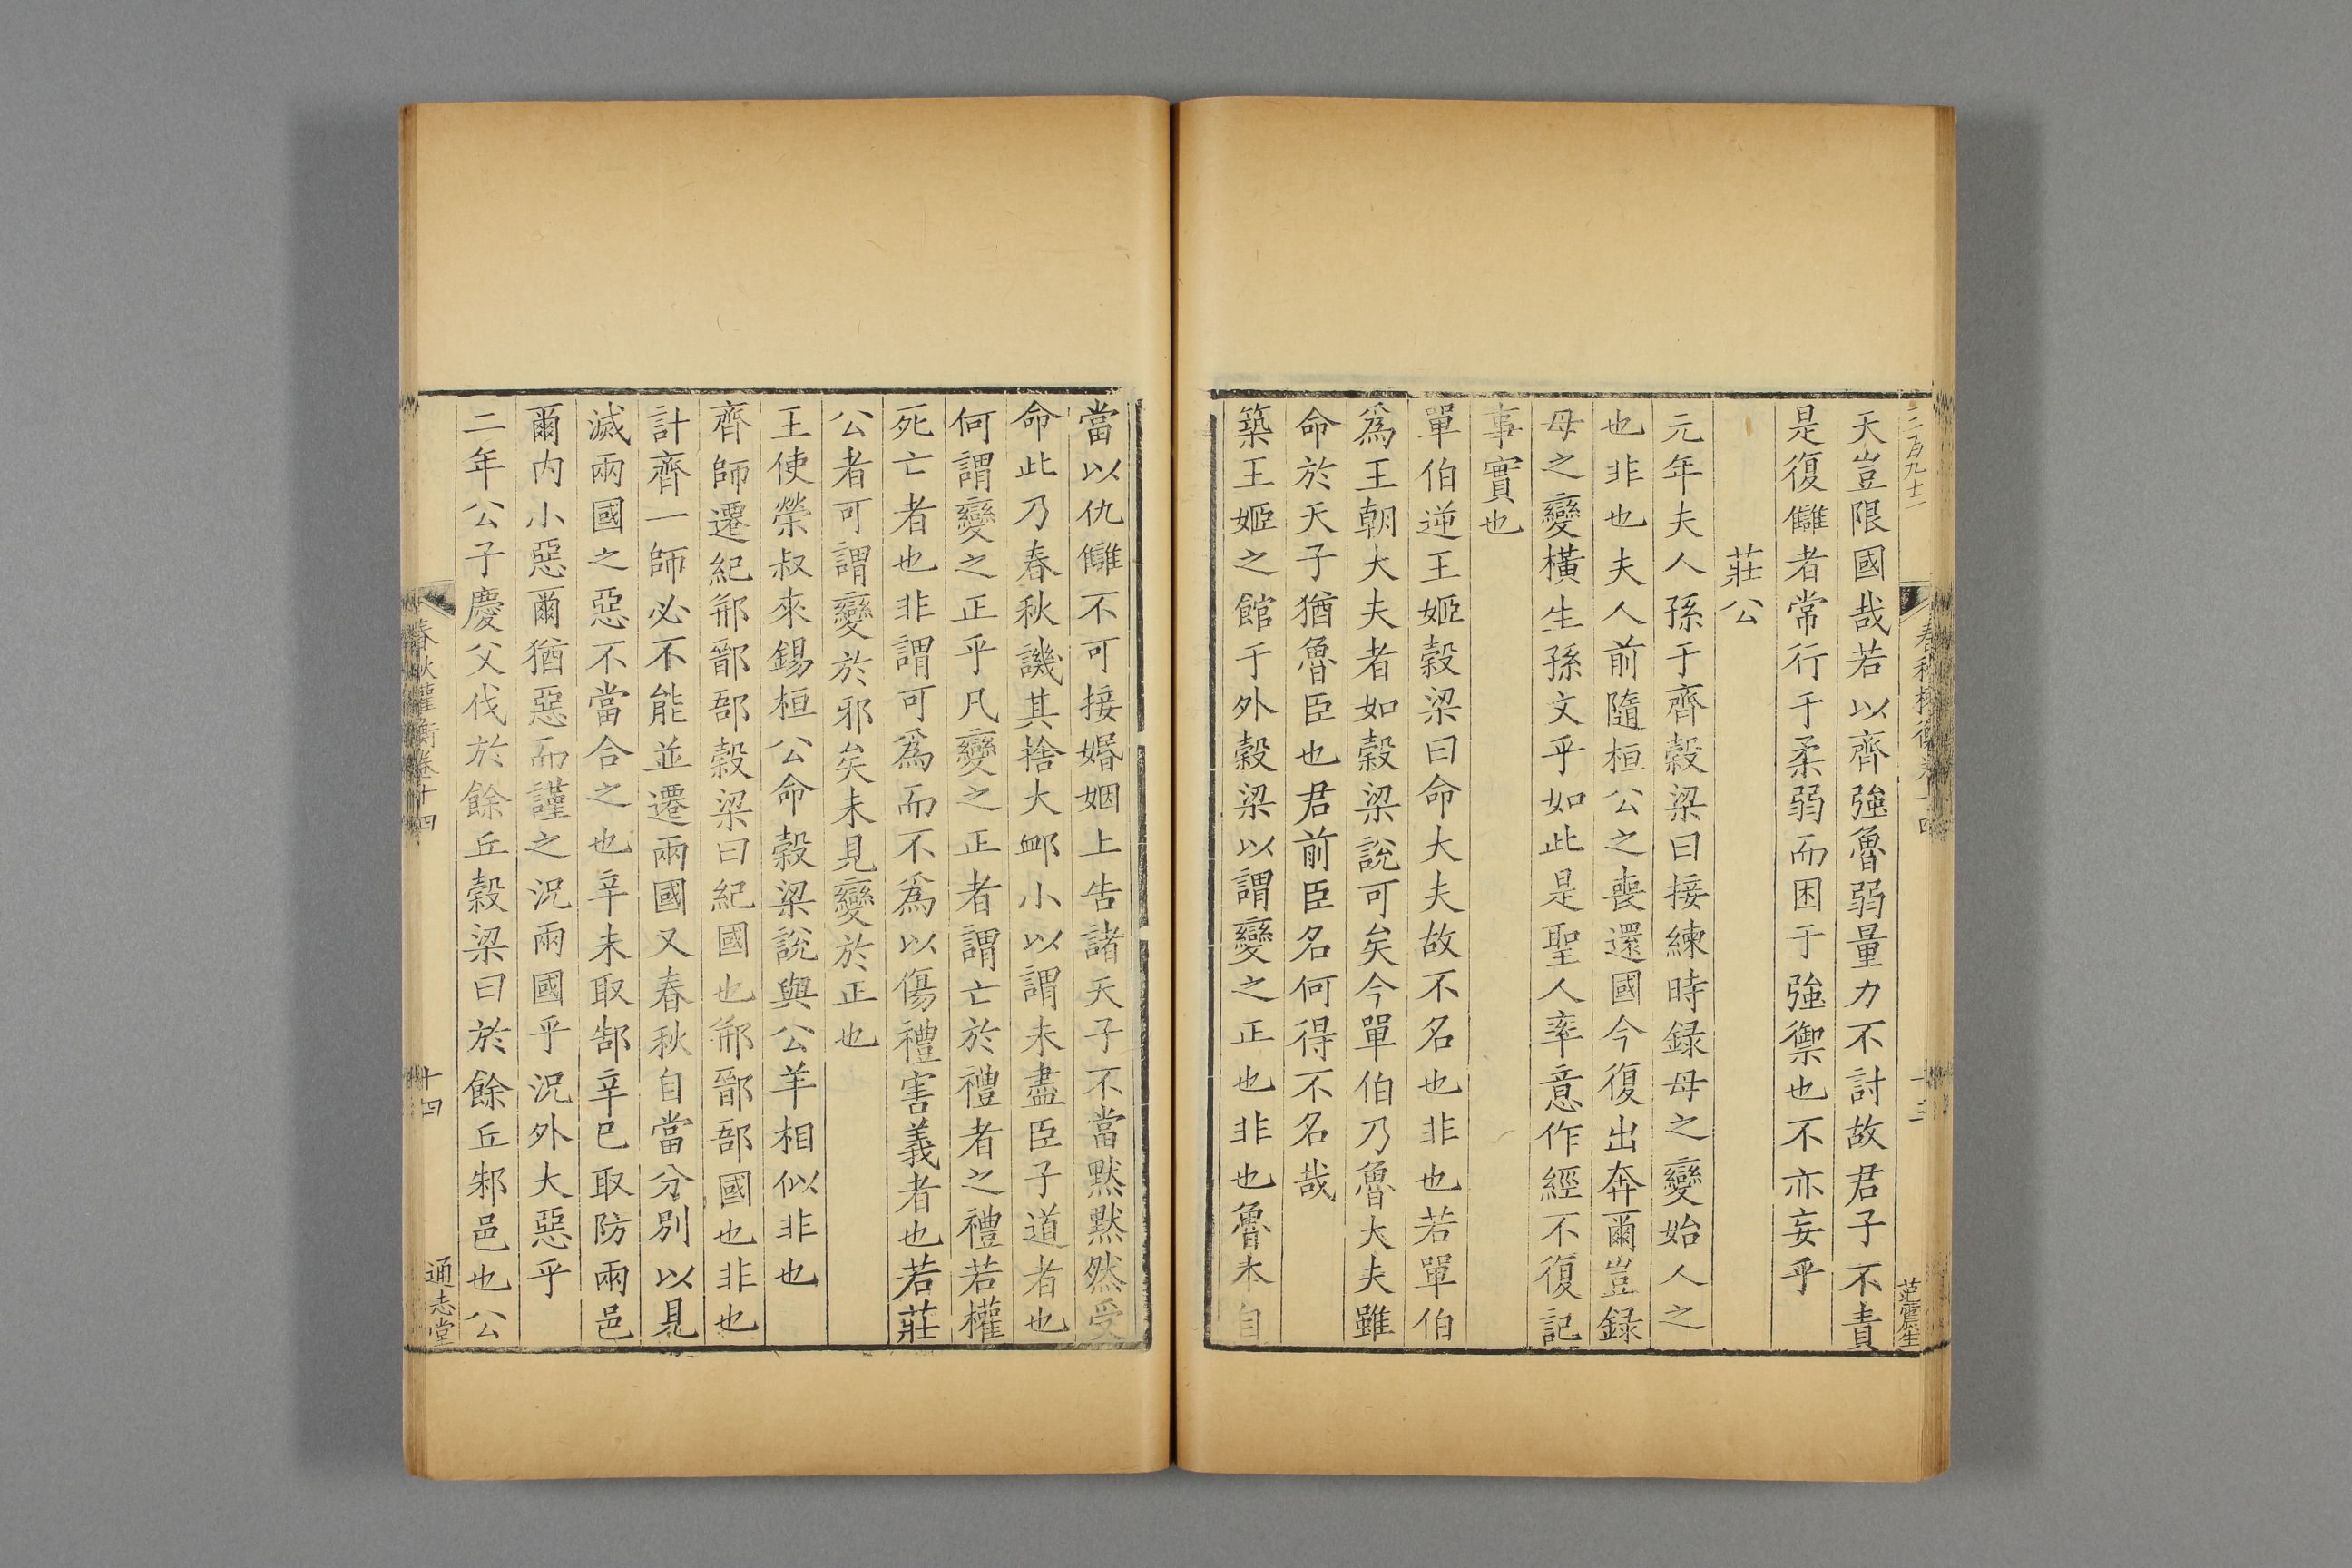 天豈限國哉若以齊強魯弱量力不討故君子不責
是復讎者常行于柔弱而困于強禦也不亦妄乎
莊公
元年夫人孫于齊穀梁曰接練時録母之變始人之
也非也夫人前隨桓公之喪還國今復出奔爾豈録
母之變橫生孫文乎如此是聖人率意作經不復記
事實也
單伯逆王姬穀梁曰命大夫故不名也非也若單伯
爲王朝大夫者如穀梁說可矣今單伯乃魯大夫雖
命於天子猶魯臣也君前臣名何得不名哉
築王姬之館于外穀梁以謂變之正也非也魯本自
當以仇讎不可接婚姻上告諸天子不當默默然受
命此乃春秋譏其捨大䘏小以謂未盡臣子道者也
何謂變之正乎凡變之正者謂亡於禮者之禮若權
死亡者也非謂可爲而不爲以傷禮害義者也若莊
公者可謂變於邪矣未見變於正也
王使榮叔來錫桓公命穀梁說與公羊相似非也
齊師遷紀郱鄑郚穀梁曰紀國也郱鄑郚國也非也
計齊一師必不能並遷兩國又春秋自當分別以見
滅兩國之惡不當合之也辛未取郜辛巳取防兩邑
爾内小惡爾猶惡而謹之況兩國乎況外大惡乎
二年公子慶父伐於餘丘穀梁曰於餘丘邾邑也公
春秋權衡卷十四
十四
通志堂